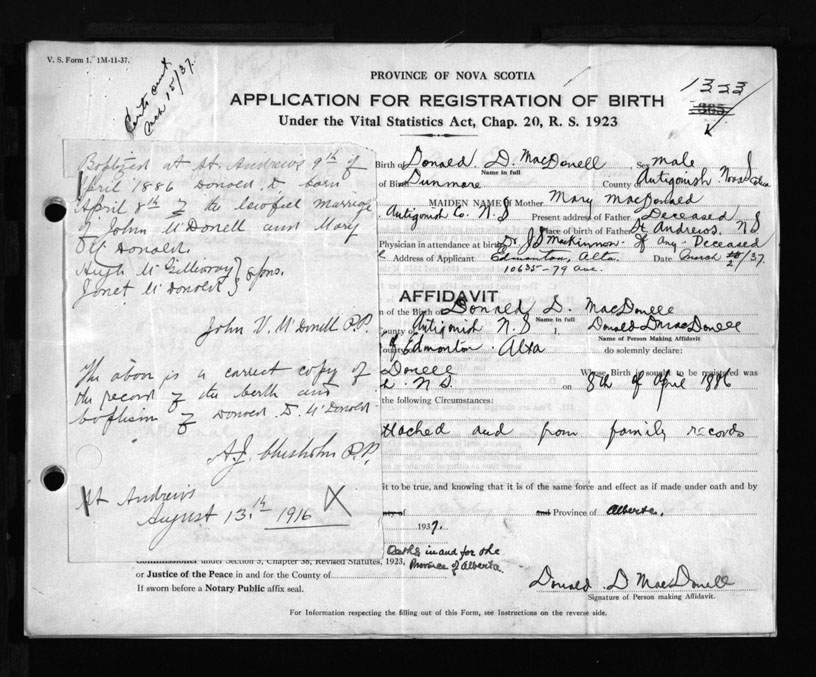 V. S. Form 1. 1M-11-37.
15/37.
PROVINCE OF NOVA SCOTIA
1333
365
APPLICATION FOR REGISTRATION OF BIRTH
Under the Vital Statistics Act, Chap. 20, R. S. 1923
Baptized at St. Andrews 9th of
April 1886 Donald D. born
April 8th of the lawful marriage
of John McDonell and Mary
McDonald.
Hugh McGillivray } spons.
Janet McDonald }
John V. McDonell P.P.
The above is a correct copy of
the record of the berth and
baptism of Donald D. McDonell
A.J. Chisholm P.P.
St Andrews
August 13th 1916
Birth of Donald D. MacDonell Sex male
Name in full
of Birth Dunmore County of Antigonish Nova Scotia
MAIDEN NAME of Mother Mary MacDonald
Antigonish Co. N.S Present address of Father Deceased
Place of birth of Father St Andrews. N S
Physician in attendance at birth Dr J MacKinnon. If any - Deceased
Address of Applicant Edmonton, Alta. Date March /37.
10635-79 Ave.
AFFIDAVIT
n of the Birth of Donald D. MacDonell
Name in full
County of Antigonish N.S Donald D MacDonell
Name of Person Making Affidavit
of Edmonton Alta do solemnly declare:
Donell Whose Birth is sought to be registered was
N.S. on 8th of April 1886
the following Circumstances:
ttached and from family records
it to be true, and knowing that it is of the same force and effect as if made under oath and by
of and Province of Alberta.
1937.
Oaths in and for the
Province of Alberta.
Commissioner under Section 3, Chapter 38, Revised Statutes, 1923,
or Justice of the Peace in and for the County of
If sworn before a Notary Public affix seal.
Donald D MacDonell
Signature of Person making Affidavit.
For Information respecting the filling out of this Form, see Instructions on the reverse side.